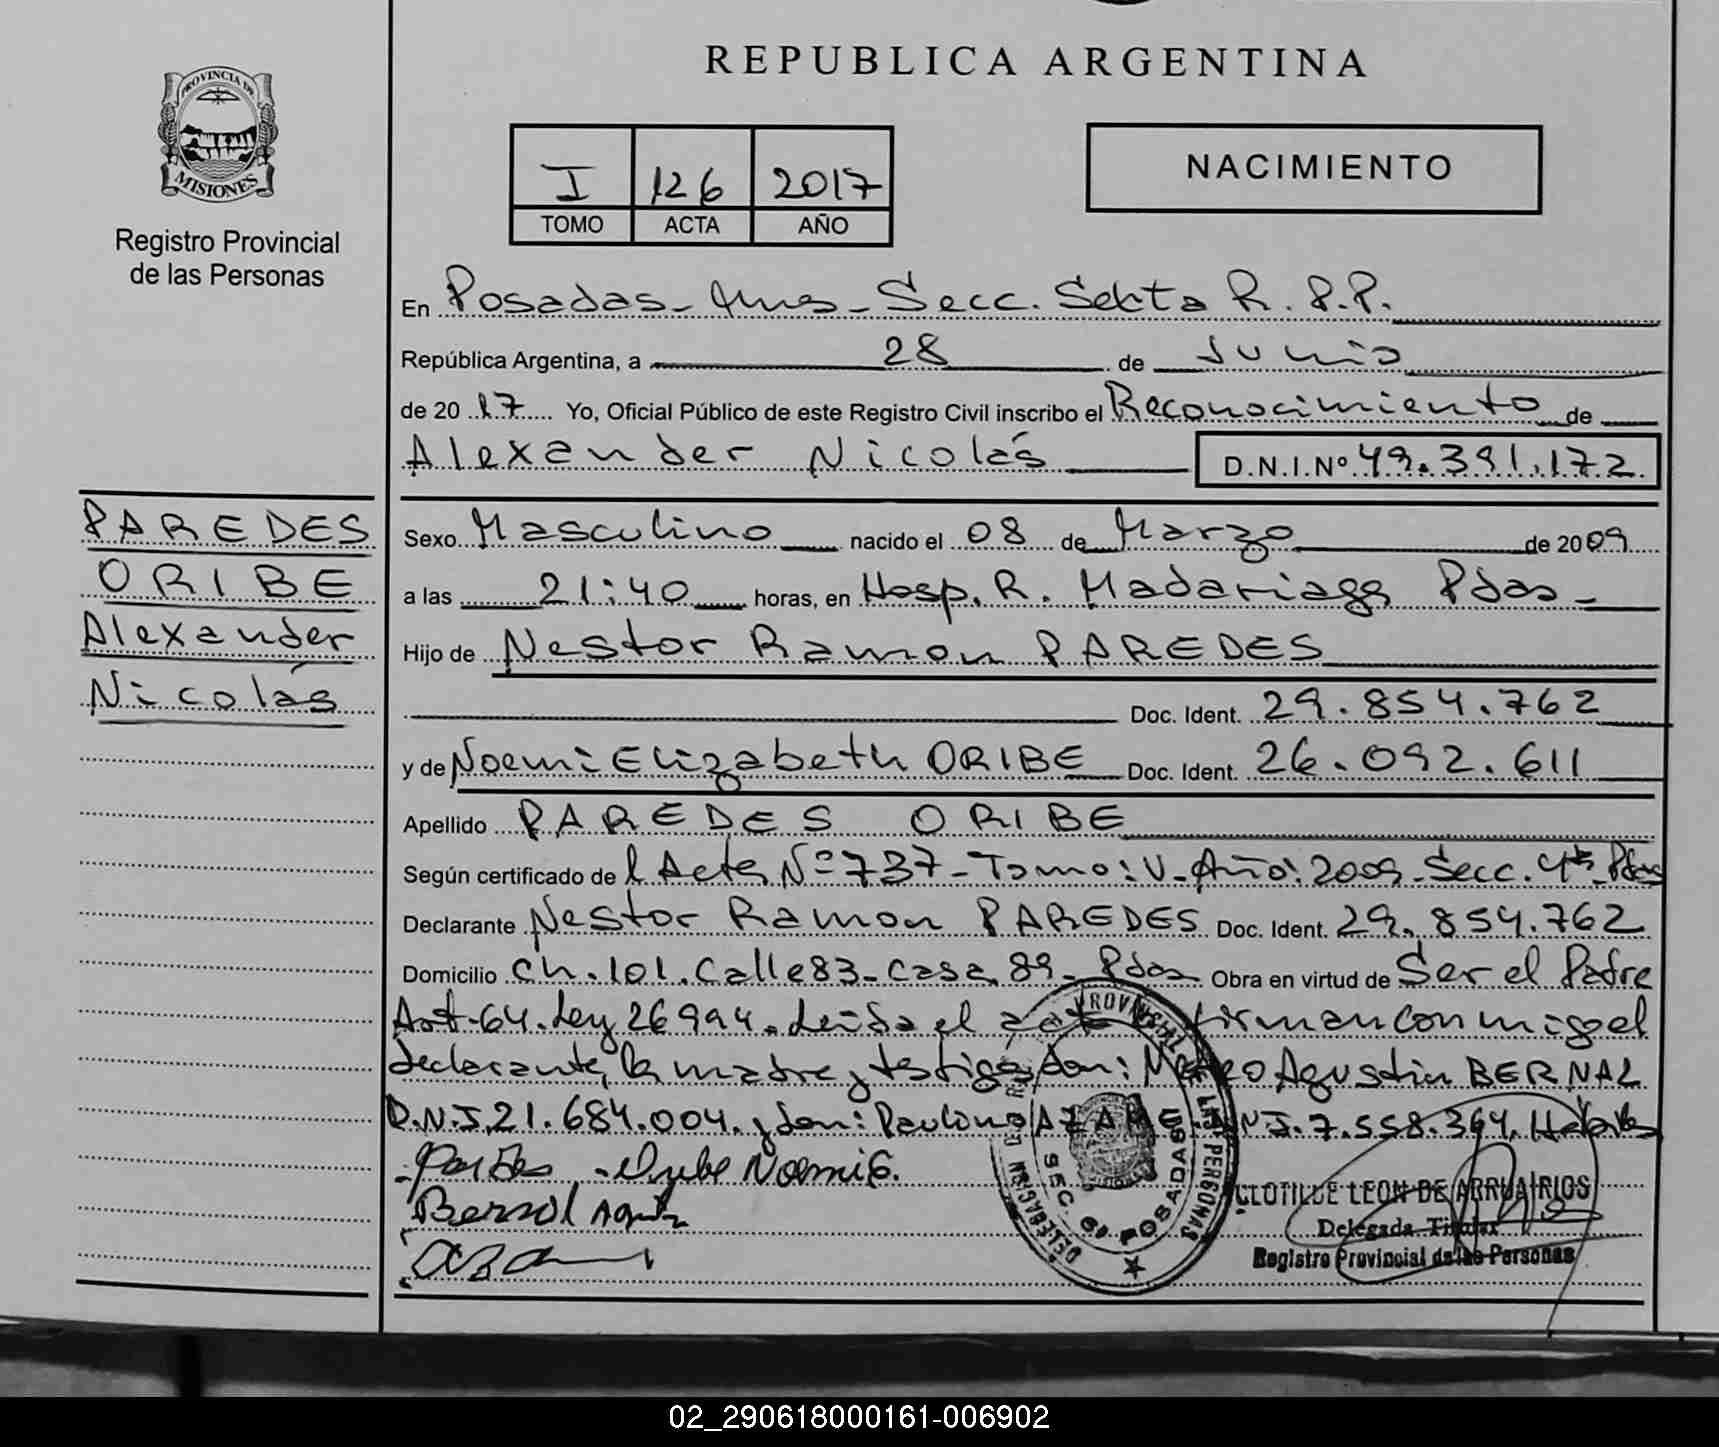 REPUBLICA ARGENTINA
PROVINCIA DE
MISIONES
Registro Provincial
de las Personas
I 126 2017
TOMO ACTA AÑO
NACIMIENTO
En Posadas - Mnes - Secc. Sexta R. P. P.
República Argentina, a 28 de Junio
de 2017 Yo, Oficial Público de este Registro Civil inscribo el Reconocimiento de
Alexander Nicolás D.N.I.Nº 49.391.172
PAREDES
ORIBE
Alexander
Nicolás
Sexo Masculino nacido el 08 de Marzo de 2009
a las 21:40 horas, en Hosp. R. Madariaga Pdas -
Hijo de Nestor Ramon PAREDES
Doc. Ident. 29.854.762
y de Noemi Elizabeth ORIBE Doc. Ident. 26.092.611
Apellido PAREDES ORIBE
Según certificado del Acta Nº 737 - Tomo: V - Año: 2009 - Secc. 4ta - Pdas
Declarante Nestor Ramon PAREDES Doc. Ident. 29.854.762
Domicilio Ch. 101. Calle 83 - Casa 89 - Pdas Obra en virtud de Ser el Padre
Art. 64. Ley 26994. Leida el acta firman conmigo el
declarante, la madre y testigos don: Agustin BERNAL
D.N.I. 21.684.004. y don: Paulino D.N.I. 7.558.364.
Paredes - Oribe Noemi E.
Bernal Agustin
DELEGACION PROVINCIAL DE LAS PERSONAS
SEC. 6ª POSADAS
CLOTILDE LEON DE ARRUA RIOS
Delegada Titular
Registro Provincial de las Personas
02_290618000161-006902